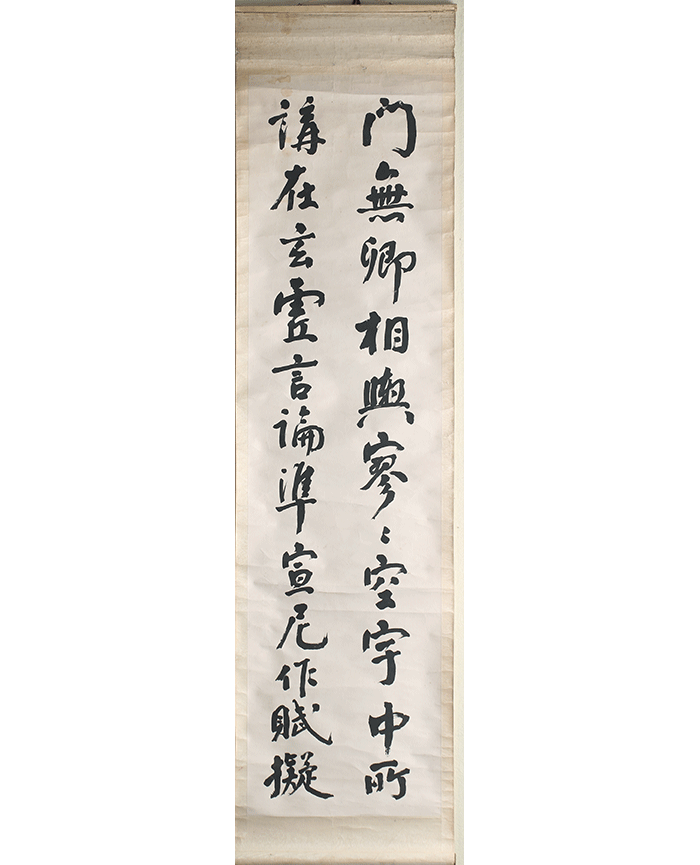 門無卿相輿寥〻空宇中所
講在玄虛言論準宣尼作賦擬